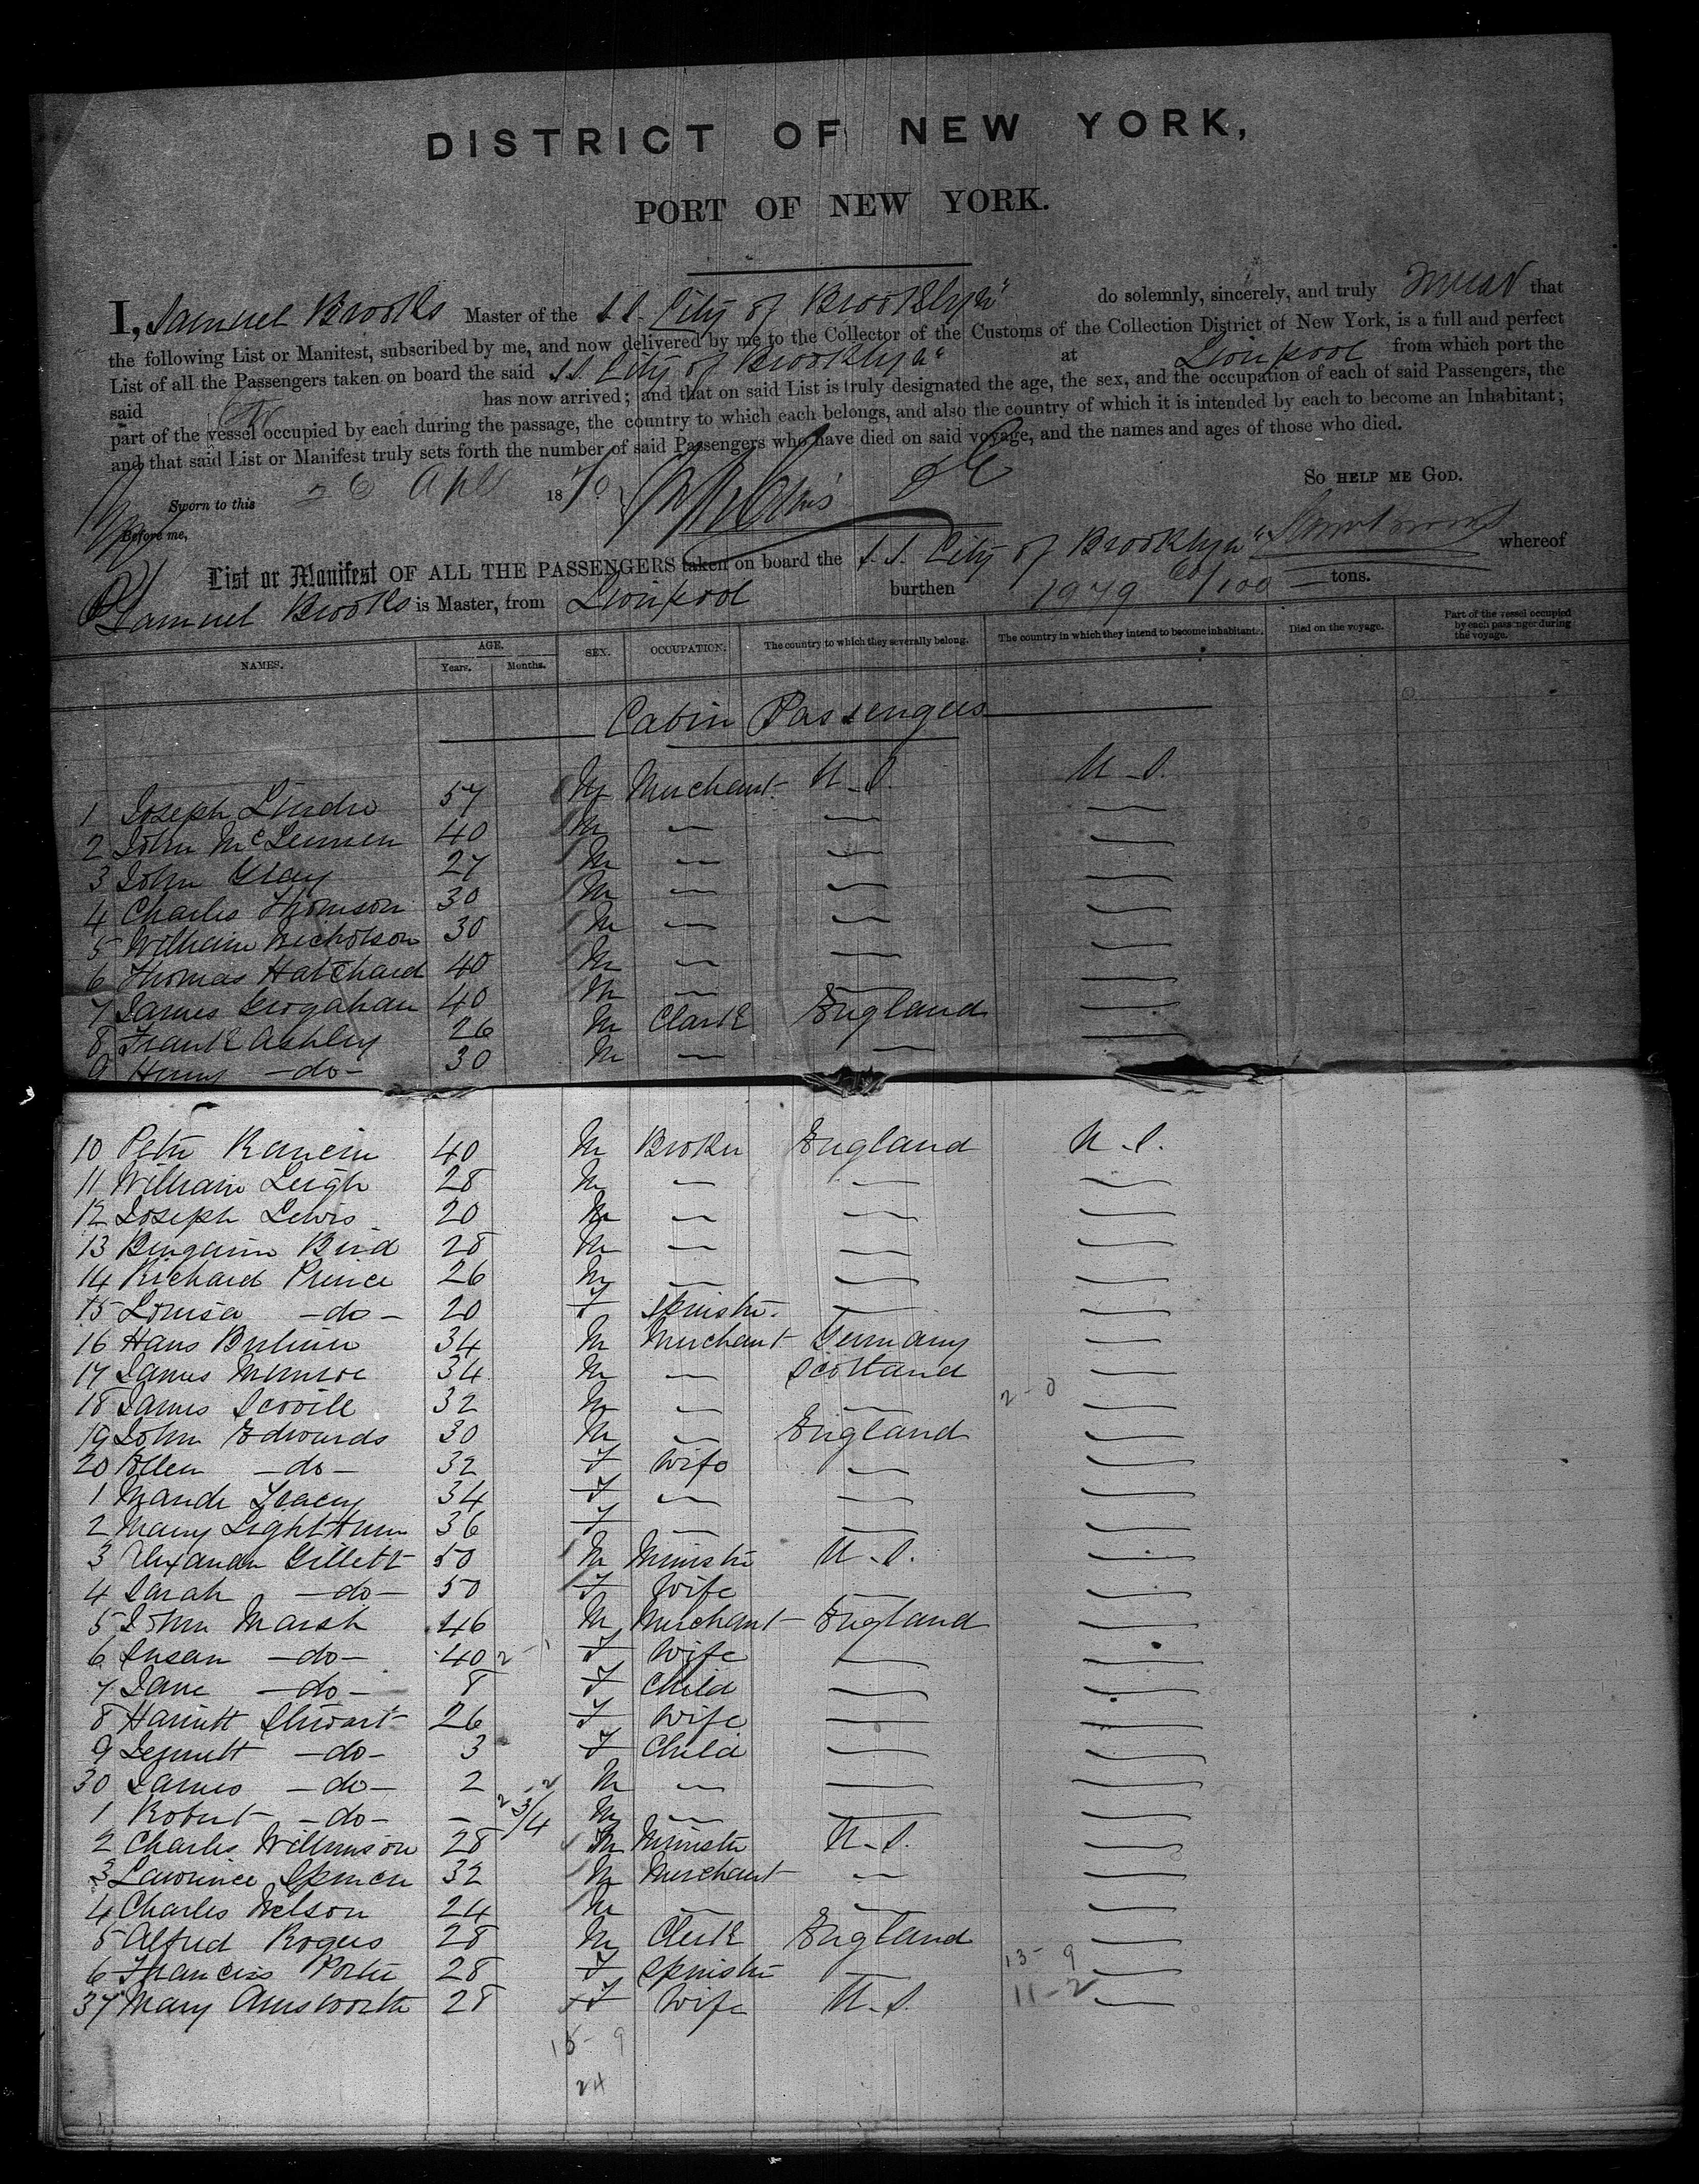 DISTRICT OF NEW YORK,
PORT OF NEW YORK.
I, Samuel Brooks Master of the s.s. City of Brooklyn" do solemnly, sincerely, and truly swear that
the following List or Manifest, subscribed by me, and now delivered by me to the Collector of the Customs of the Collection District of New York, is a full and perfect
List of all the Passengers taken on board the said s.s. City of Brooklyn" at Liverpool from which port the
said has now arrived; and that on said List is truly designated the age, the sex, and the occupation of each of said Passengers, the
part of the vessel occupied by each during the passage, the country to which each belongs, and also the country of which it is intended by each to become an Inhabitant;
and that said List or Manifest truly sets forth the number of said Passengers who have died on said voyage, and the names and ages of those who died.
SO HELP ME GOD.
Sworn to this 26 Apl 1870
Before me,
List or Manifest OF ALL THE PASSENGERS taken on board the s.s. City of Brooklyn" whereof
Samuel Brooks is Master, from Liverpool burthen 1979 60/100 tons.
NAMES. AGE. Years. Months. SEX. OCCUPATION. The country to which they severally belong. The country in which they intend to become inhabitants. Died on the voyage. Part of the vessel occupied by each passenger during the voyage.
Cabin Passengers
1 Joseph 57 M Merchant U.S. U.S.
2 John McLennen 40 M — — —
3 John Gray 27 M — — —
4 Charles Thomson 30 M — — —
5 William Nicholson 30 M — — —
6 Thomas Hatchard 40 M — — —
7 James Grogahan 40 M — — —
8 Frank Ashley 26 M Clark England —
9 Henry —do— 30 M — — —
10 Peter 40 M Broker England U.S.
11 William Leigh 28 M — — —
12 Joseph Lewis 20 M — — —
13 Benjamin Bird 28 M — — —
14 Richard Prince 26 M — — —
15 Louisa —do— 20 F Spinster — —
16 Hans 34 M Merchant Germany —
17 James Munroe 34 M — Scotland —
18 James Scovill 32 M — — —
19 John Edwards 30 M — England —
20 Ellen —do— 32 F Wife — —
1 Maude Tracey 34 F — — —
2 Mary 36 F — — —
3 Alexander Gillett 50 M Minister U.S. —
4 Sarah —do— 50 F Wife — —
5 John Marsh 46 M Merchant England —
6 Susan —do— 40 F Wife — —
7 Jane —do— 8 F Child — —
8 Harriett Stewart 26 F Wife — —
9 —do— 3 F Child — —
30 James —do— 2 M — — —
1 Robert —do— — 3/4 M — — —
2 Charles Williamson 28 M Minister U.S. —
3 Lawrence Spencer 32 M Merchant — —
4 Charles Nelson 24 M — — —
5 Alfred Rogers 28 M Clerk England —
6 Francis Porter 28 F Spinster — —
37 Mary Ainsworth 28 F Wife U.S. —
13-9
11-2
15-9
24